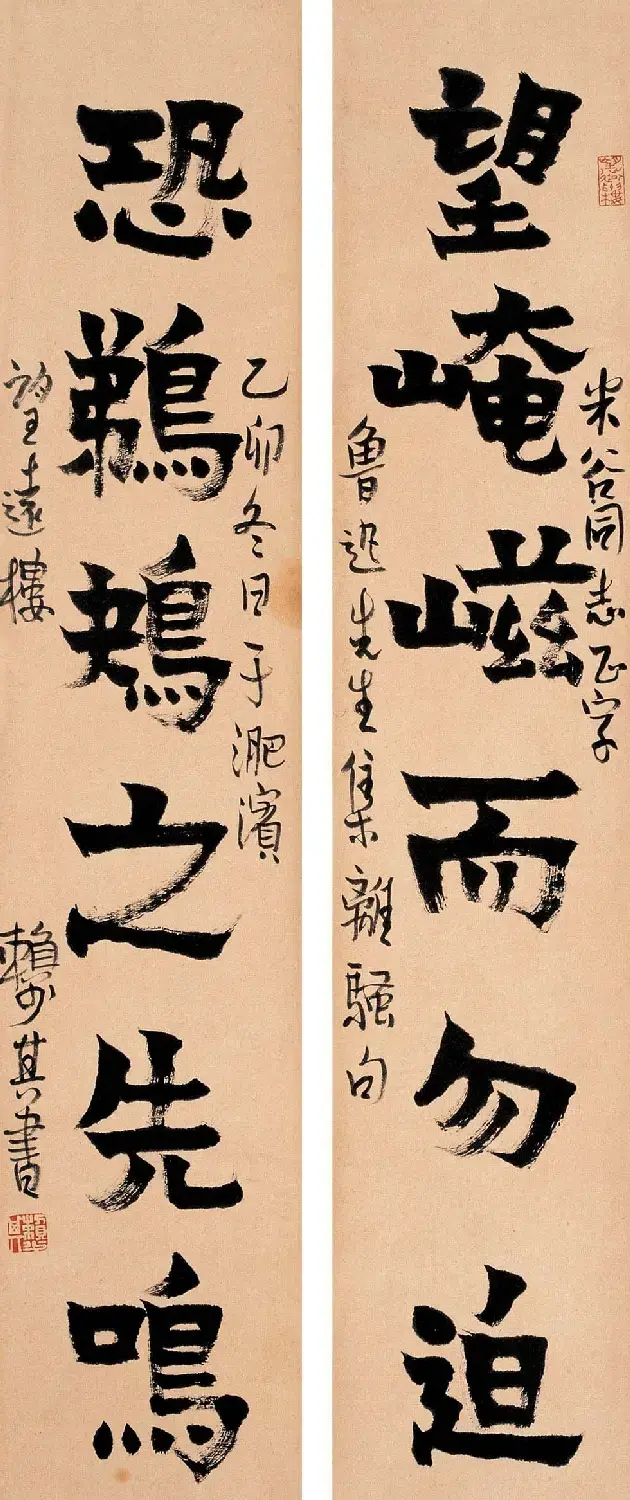 米谷同志正字
望崦嵫而勿迫
魯迅先生集離騷句
乙卯冬日于淝濱
恐鵜鴂之先鳴
望遠樓
賴少其書